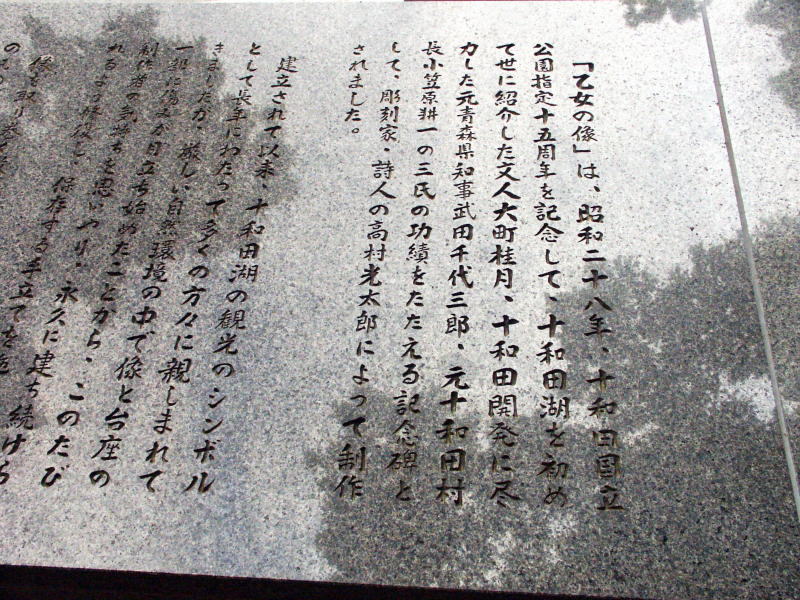 「乙女の像」は、昭和二十八年、十和田国立
公園指定十五周年を記念して、十和田湖を初め
て世に紹介した文人大町桂月、十和田開発に尽
力した元青森県知事武田千代三郎、元十和田村
長小笠原耕一の三氏の功績をたたえる記念碑と
して、彫刻家・詩人の高村光太郎によって制作
されました。
建立されて以来、十和田湖の観光のシンボル
として長年にわたって多くの方々に親しまれて
きましたが、厳しい自然環境の中で像と台座の
一部に傷みが目立ち始めたことから、このたび
制作者の気持ちを思いやり、永久に建ち続けら
保存する手立てを
像を取り